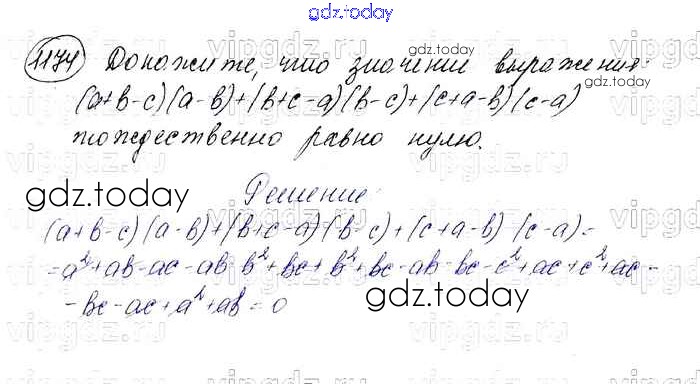 gdz.today
1174 Докажите, что значение выражения:
gdz.today
(a+b-c)(a-b)+(b+c-a)(b-c)+(c+a-b)(c-a)
тождественно равно нулю.
gdz.today
Решение:
(a+b-c)(a-b)+(b+c-a)(b-c)+(c+a-b)(c-a)=
=a²+ab-ac-ab-b²+bc+b²+bc-ab-bc-c²+ac+c²+ac-
-bc-ac+a²+ab=0
gdz.today
gdz.today